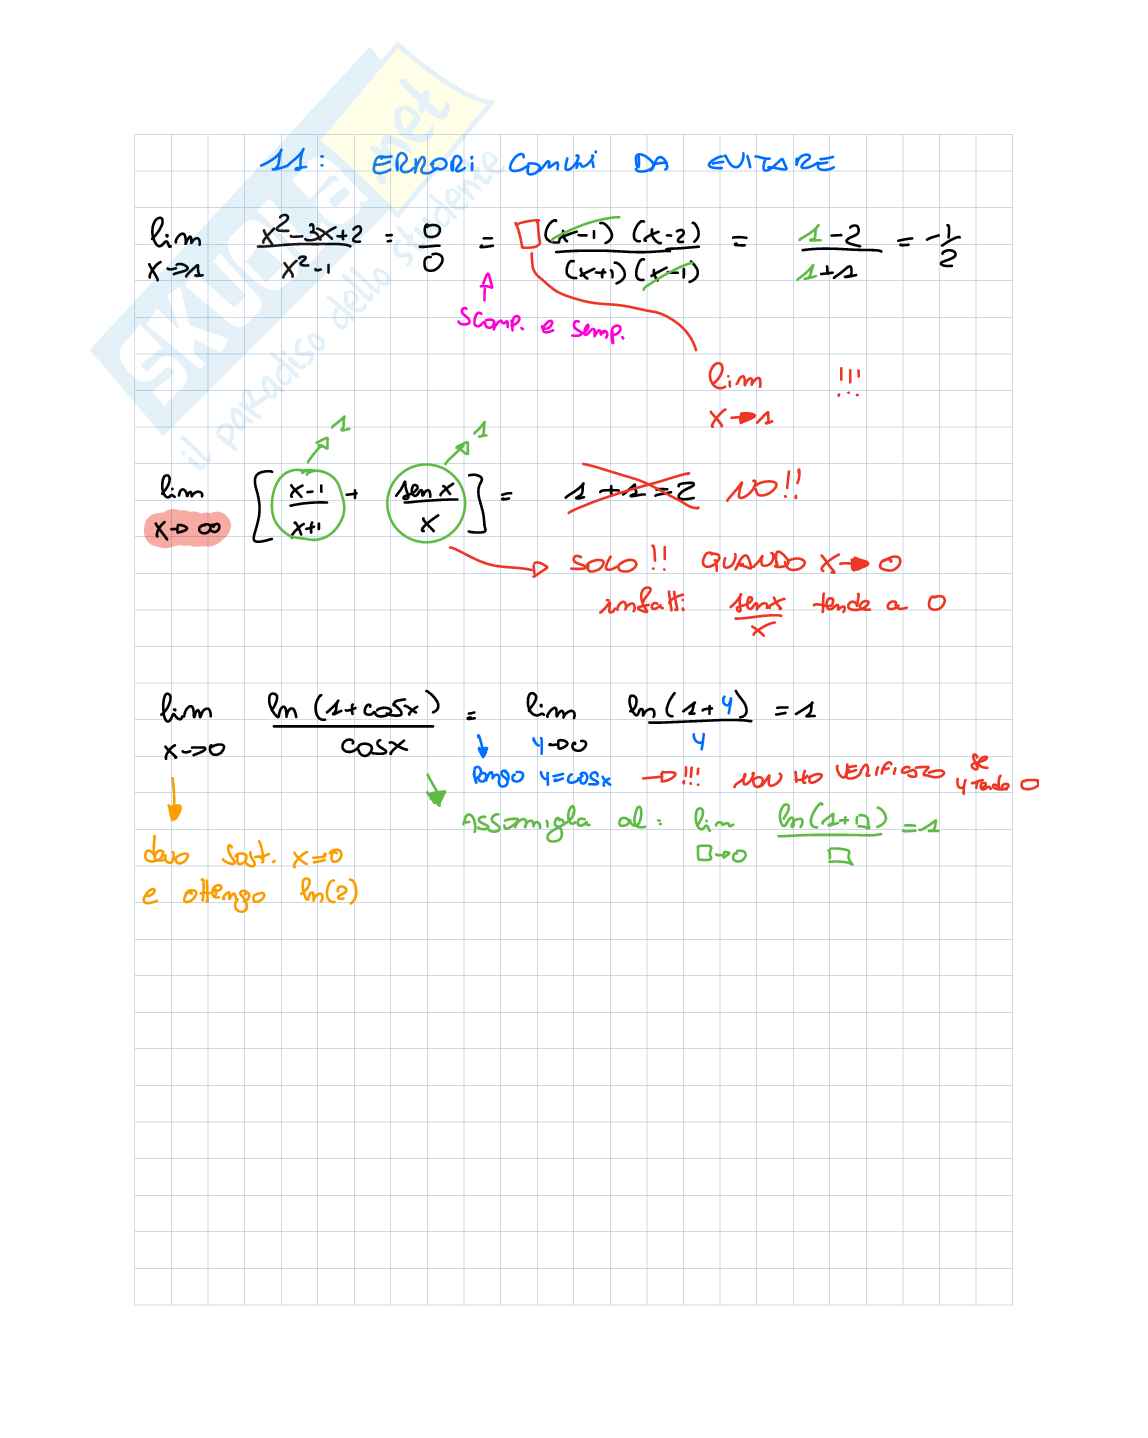 11: ERRORI COMUNI DA EVITARE
lim x→1 (x²-3x+2)/(x²-1) = 0/0 = □ (x-1)(x-2)/(x+1)(x-1) = (1-2)/(1+1) = -1/2
Scomp. e semp.
lim x→1 !!!
1 1
lim x→∞ [(x-1)/(x+1) + sen x/x] = 1+1=2 NO!!
SOLO!! QUANDO x→0
infatti senx/x tende a 0
lim x→0 ln(1+cosx)/cosx = lim y→0 ln(1+y)/y = 1
Pongo y=cosx → !!! NON HO VERIFICATO se y tende 0
Assomiglia al: lim □→0 ln(1+□)/□ = 1
devo sost. x=0
e ottengo ln(2)
SKUOLA.net
il paradiso dello studente